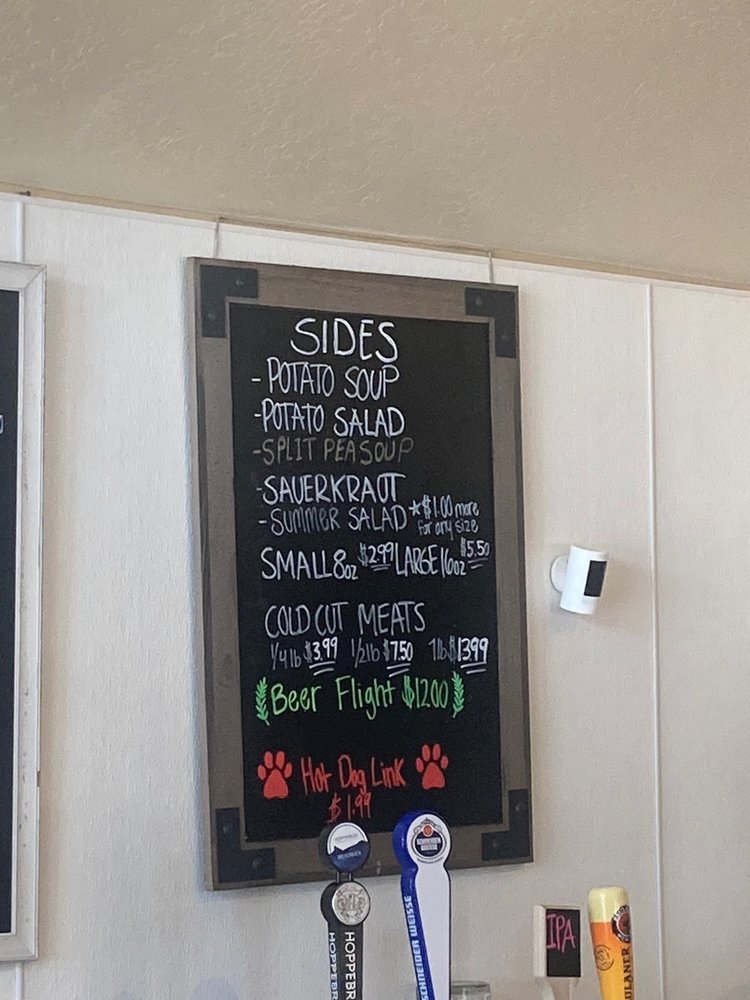 SIDES
- POTATO SOUP
-POTATO SALAD
-SPLIT PEA SOUP
-SAUERKRAUT
-SUMMER SALAD *$1.00 more
for any size
SMALL 8oz $2.99 LARGE 16oz $5.50
COLD CUT MEATS
1/4 lb $3.99 1/2 lb $7.50 1lb $13.99
Beer Flight $12.00
Hot Dog Link
$1.99
IPA
HOPPEBR
WEISSE
ULANER